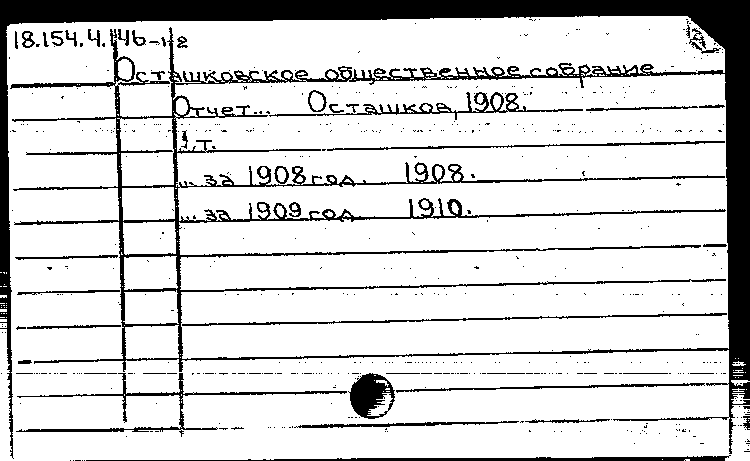 18.154.4.146-1-2
Осташковское общественное собрание
Отчет... Осташков, 1908.
1 т.
... за 1908 год. 1908.
... за 1909 год. 1910.